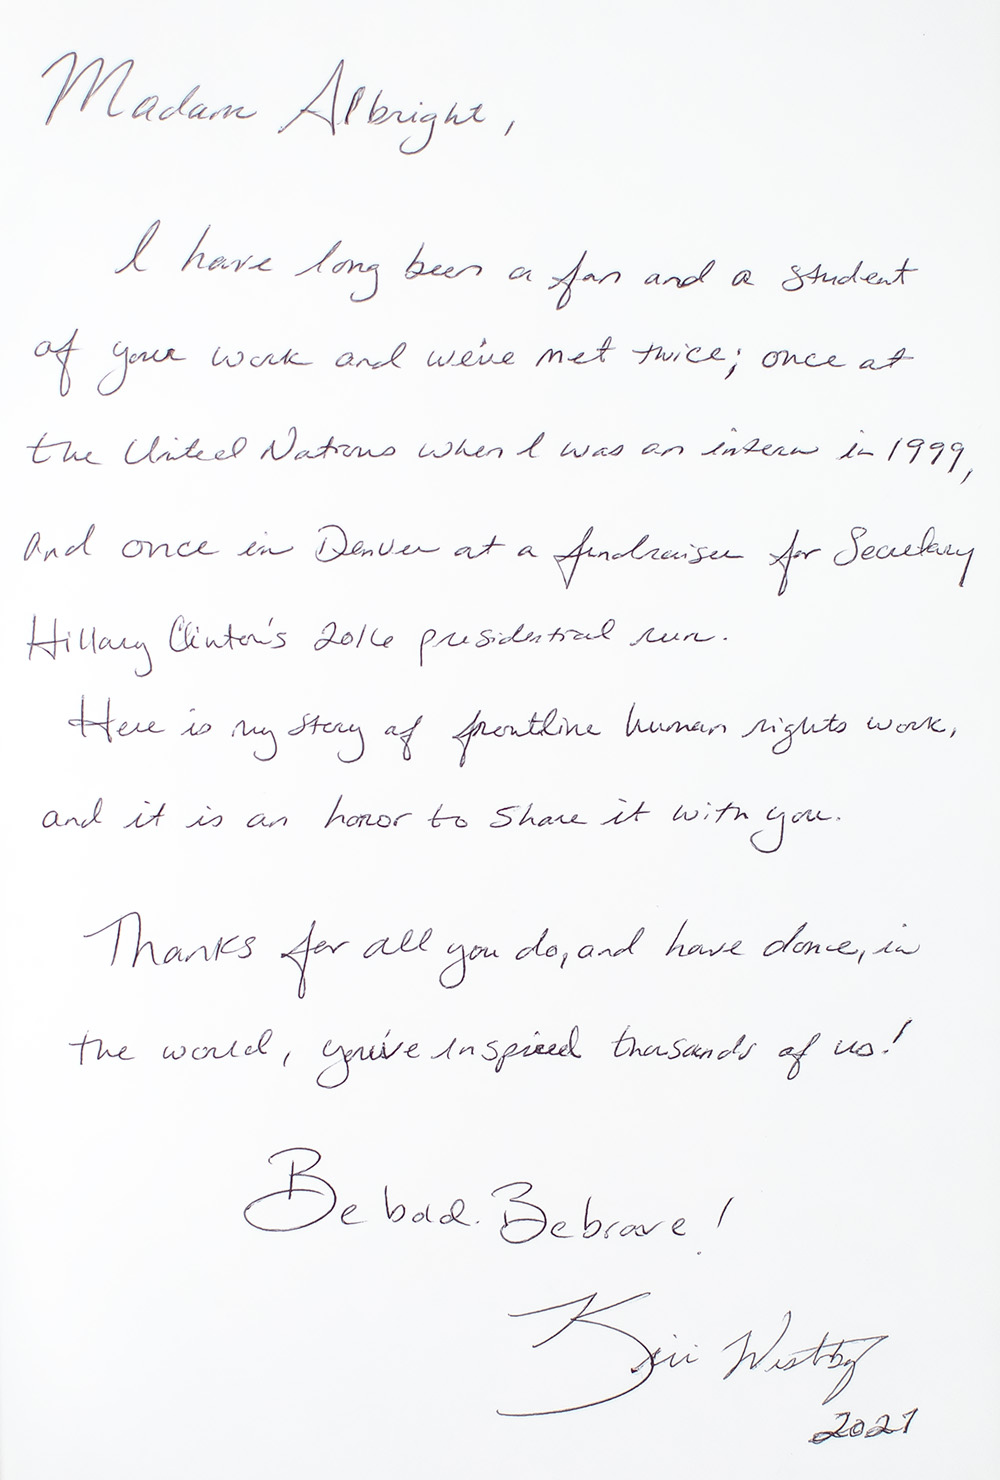 Madam Albright,
I have long been a fan and a student
of your work and we've met twice; once at
the United Nations when I was an intern in 1999,
and once in Denver at a fundraiser for Secretary
Hillary Clinton's 2016 presidential run.
Here is my story of frontline human rights work,
and it is an honor to share it with you.
Thanks for all you do, and have done, in
the world, you've inspired thousands of us!
Be bold. Be brave!
Westby
2021